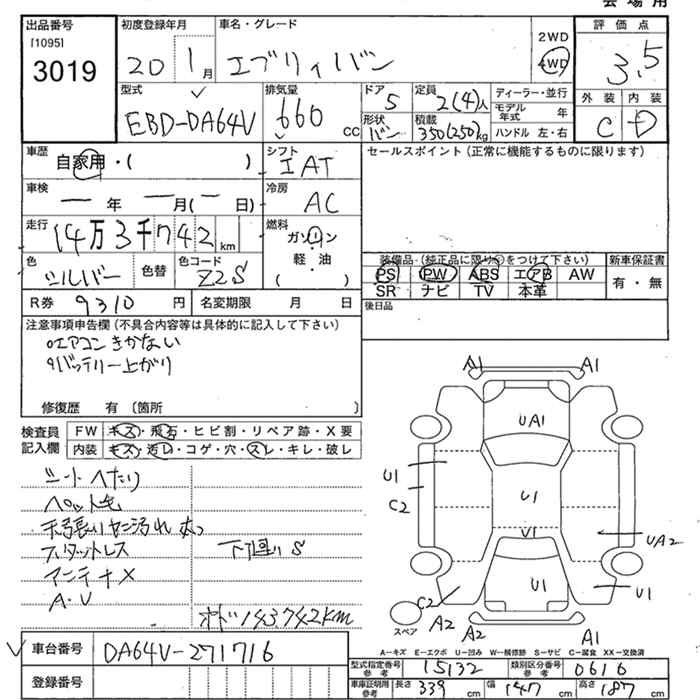 会場用
出品番号 初度登録年月 車名・グレード 2WD 4WD 評価点
[1095]
3019 20 1月 エブリィバン 3.5
型式 排気量 ドア 定員 ディーラー・並行 外装 内装
EBD-DA64V 660 CC 5 2(4)人 モデル年式 年 C D
形状 積載 ハンドル 左・右
バン 350(250)kg
車歴 自家用・( ) シフト IAT セールスポイント (正常に機能するものに限ります)
車検 ー年 ー月(ー日) 冷房 AC
走行 14万3千742km 燃料 ガソリン
軽・油
( )
色 シルバー 色替 色コード Z2S
装備品 (純正品に限り○をつけて下さい) 新車保証書
PS PW ABS エアB AW 有・無
SR ナビ TV 本革
R券 9310円 名変期限 月 日 後日品
注意事項申告欄 (不具合内容等は具体的に記入して下さい)
エアコンきかない
バッテリー上がり
修復歴 有 〔箇所 〕
検査員記入欄 FW キズ・飛石・ヒビ割・リペア跡・X要
内装 キズ・汚レ・コゲ・穴・スレ・キレ・破レ
シートへたり
ペット毛
天張りヤニ汚れ 大
フロアタットレス 下廻りS
アンテナX
A.V
オド143742km
車台番号 DA64V-271716
登録番号
A1 A1
UA1
U1
C2
U1
V1
UA2
U1
U1
C2
A2
A2 A1
スペア
A-キズ E-エクボ U-凹み W-補修跡 S-サビ C-腐食 XX-交換済
型式指定番号 参考 15132 類別区分番号 参考 0616
車庫証明用 参考 長さ 339 幅 147 高さ 187
cm